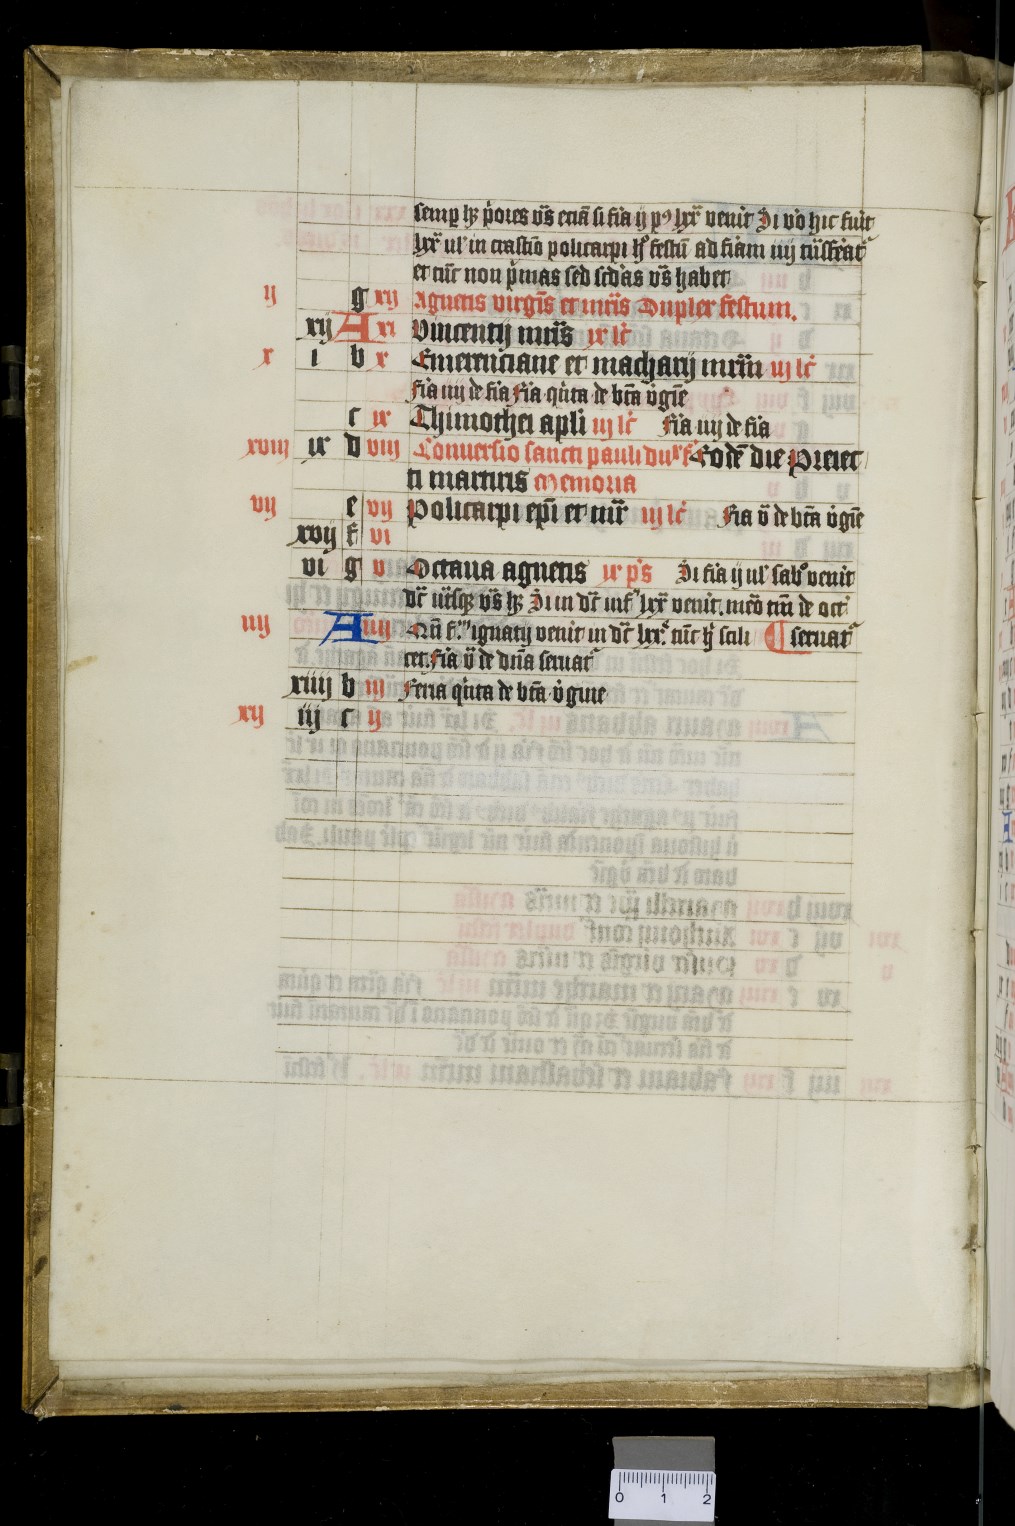 semp hȝ p̄ores v̄s etiā si fīa ij pꝰ lxx̄ venit Si v̄o hic fu̇it
lxx̄ ul' in crastīo policarpi hꝰ festū ad fīam iiij tn̄sfeat᷑
et tūc non p̄mas sed sc̄das v̄s habet
ij g xij Agnetis virgīs et mr̄is Duplex festum.
xij A xi Vincentij mr̄is ix lc̄
x i b x Emerenciane et macharij mr̄m iij lc̄
fīa iiij de fīa Fīa quīta de bt̄a v̇gīe
c ix Thimothei apl̄i iij lc̄ Fīa iiij de fīa
xviij ix d viij Conuersio sancti pauli du᷑ f᷑ Eodē die Preiec
ti martiris Memoria
vij e vij Policarpi ep̄i et mr̄ iij lc̄ Fīa v̄ de bt̄a v̇gīe
xvij f vi
vi g v Octaua agnetis ix p̄s Si fīa ij ul' sab̄o venit
dt̄ ut̄sqȝ v̄s hȝ Si in dt̄ inf᷑ lxx̄ venit. mēō tn̄ de oct᷑
iiij A iiij Cū f᷑ ignatij venit in dt̄ lxx̄. tūc ij scl̄i ¶ seruat᷑
cet. Fīa v̄ de dn̄a seruat᷑
xiiij b iij Feria quīta de bt̄a v̇gine
xij iij c ij
0 1 2